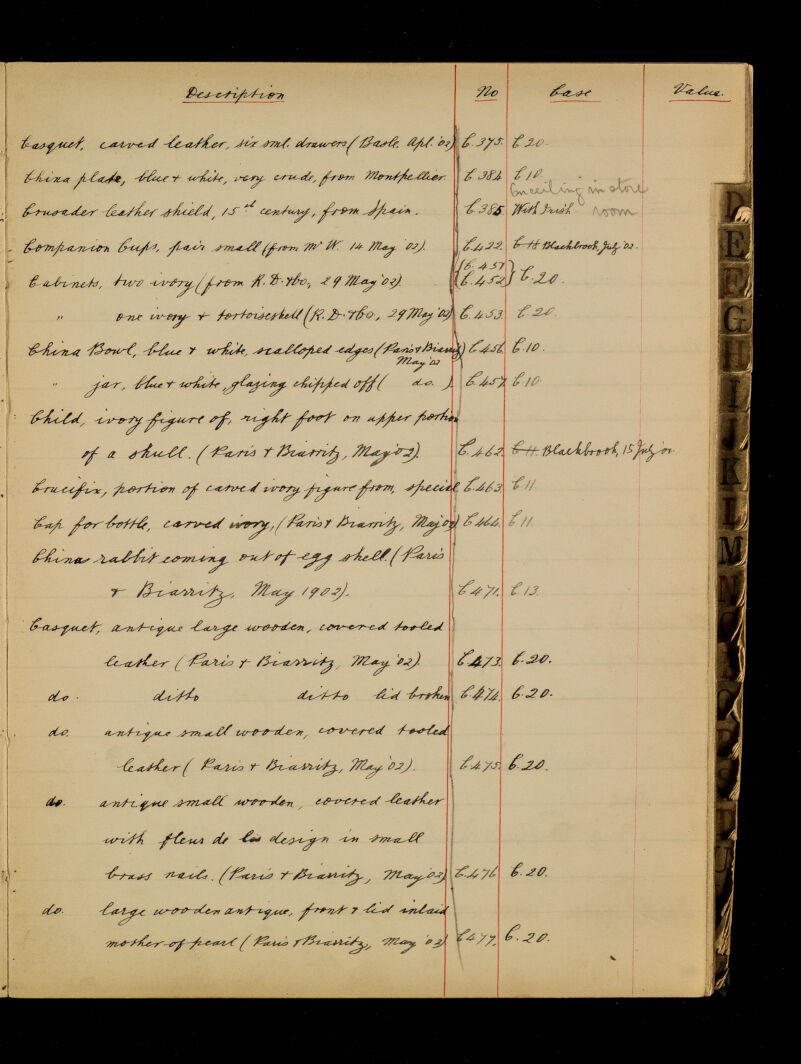 Description No Case Value.
Casquet, carved leather, six sml. drawers (Basle, Apl. '02) C.375. C.20.
China plate, blue & white, very crude, from Montpellier. C.384 C.10.
in store room
Crusader leather shield, 15th century, from Spain. C.385 With Irish
Companion Cups, pair small (from Mr W. 14 May '02). C.422. C.18 Blackbrook, July '02.
Cabinets, two ivory (from R.D. & Co., 29 May '02). {C.451 C.452} C.20.
" one ivory & tortoiseshell (R.D. & Co, 29 May '02) C.453 C.20.
China Bowl, blue & white, scalloped edges (Paris & Biarritz May '02) C.456 C.10.
" jar, blue & white, glazing chipped off ( do. ) C.457 C.10
Child, ivory figure of, right foot on upper portion
of a skull. (Paris & Biarritz, May '02). C.462. C.11. Blackbrook, 15 July '02
Crucifix, portion of carved ivory figure from, special C.463. C.11.
Cap for bottle, carved ivory, (Paris & Biarritz, May '02) C.464. C.11.
China rabbit coming out of egg shell. (Paris
& Biarritz, May 1902). C.471. C.13.
Casquet, antique large wooden, covered tooled
leather (Paris & Biarritz, May '02). C.473. C.20.
do. ditto ditto lid broken C.474. C.20.
do. antique small wooden, covered tooled
leather (Paris & Biarritz, May '02). C.475. C.20.
do. antique small wooden, covered leather
with fleur de lis design in small
brass nails. (Paris & Biarritz, May '02) C.476 C.20.
do. large wooden antique, front & lid inlaid
mother-of-pearl (Paris & Biarritz, May '02). C.477. C.20.
D
E
F
G
H
I
J
K
L
M
N
O
P
Q
R
S
T
U